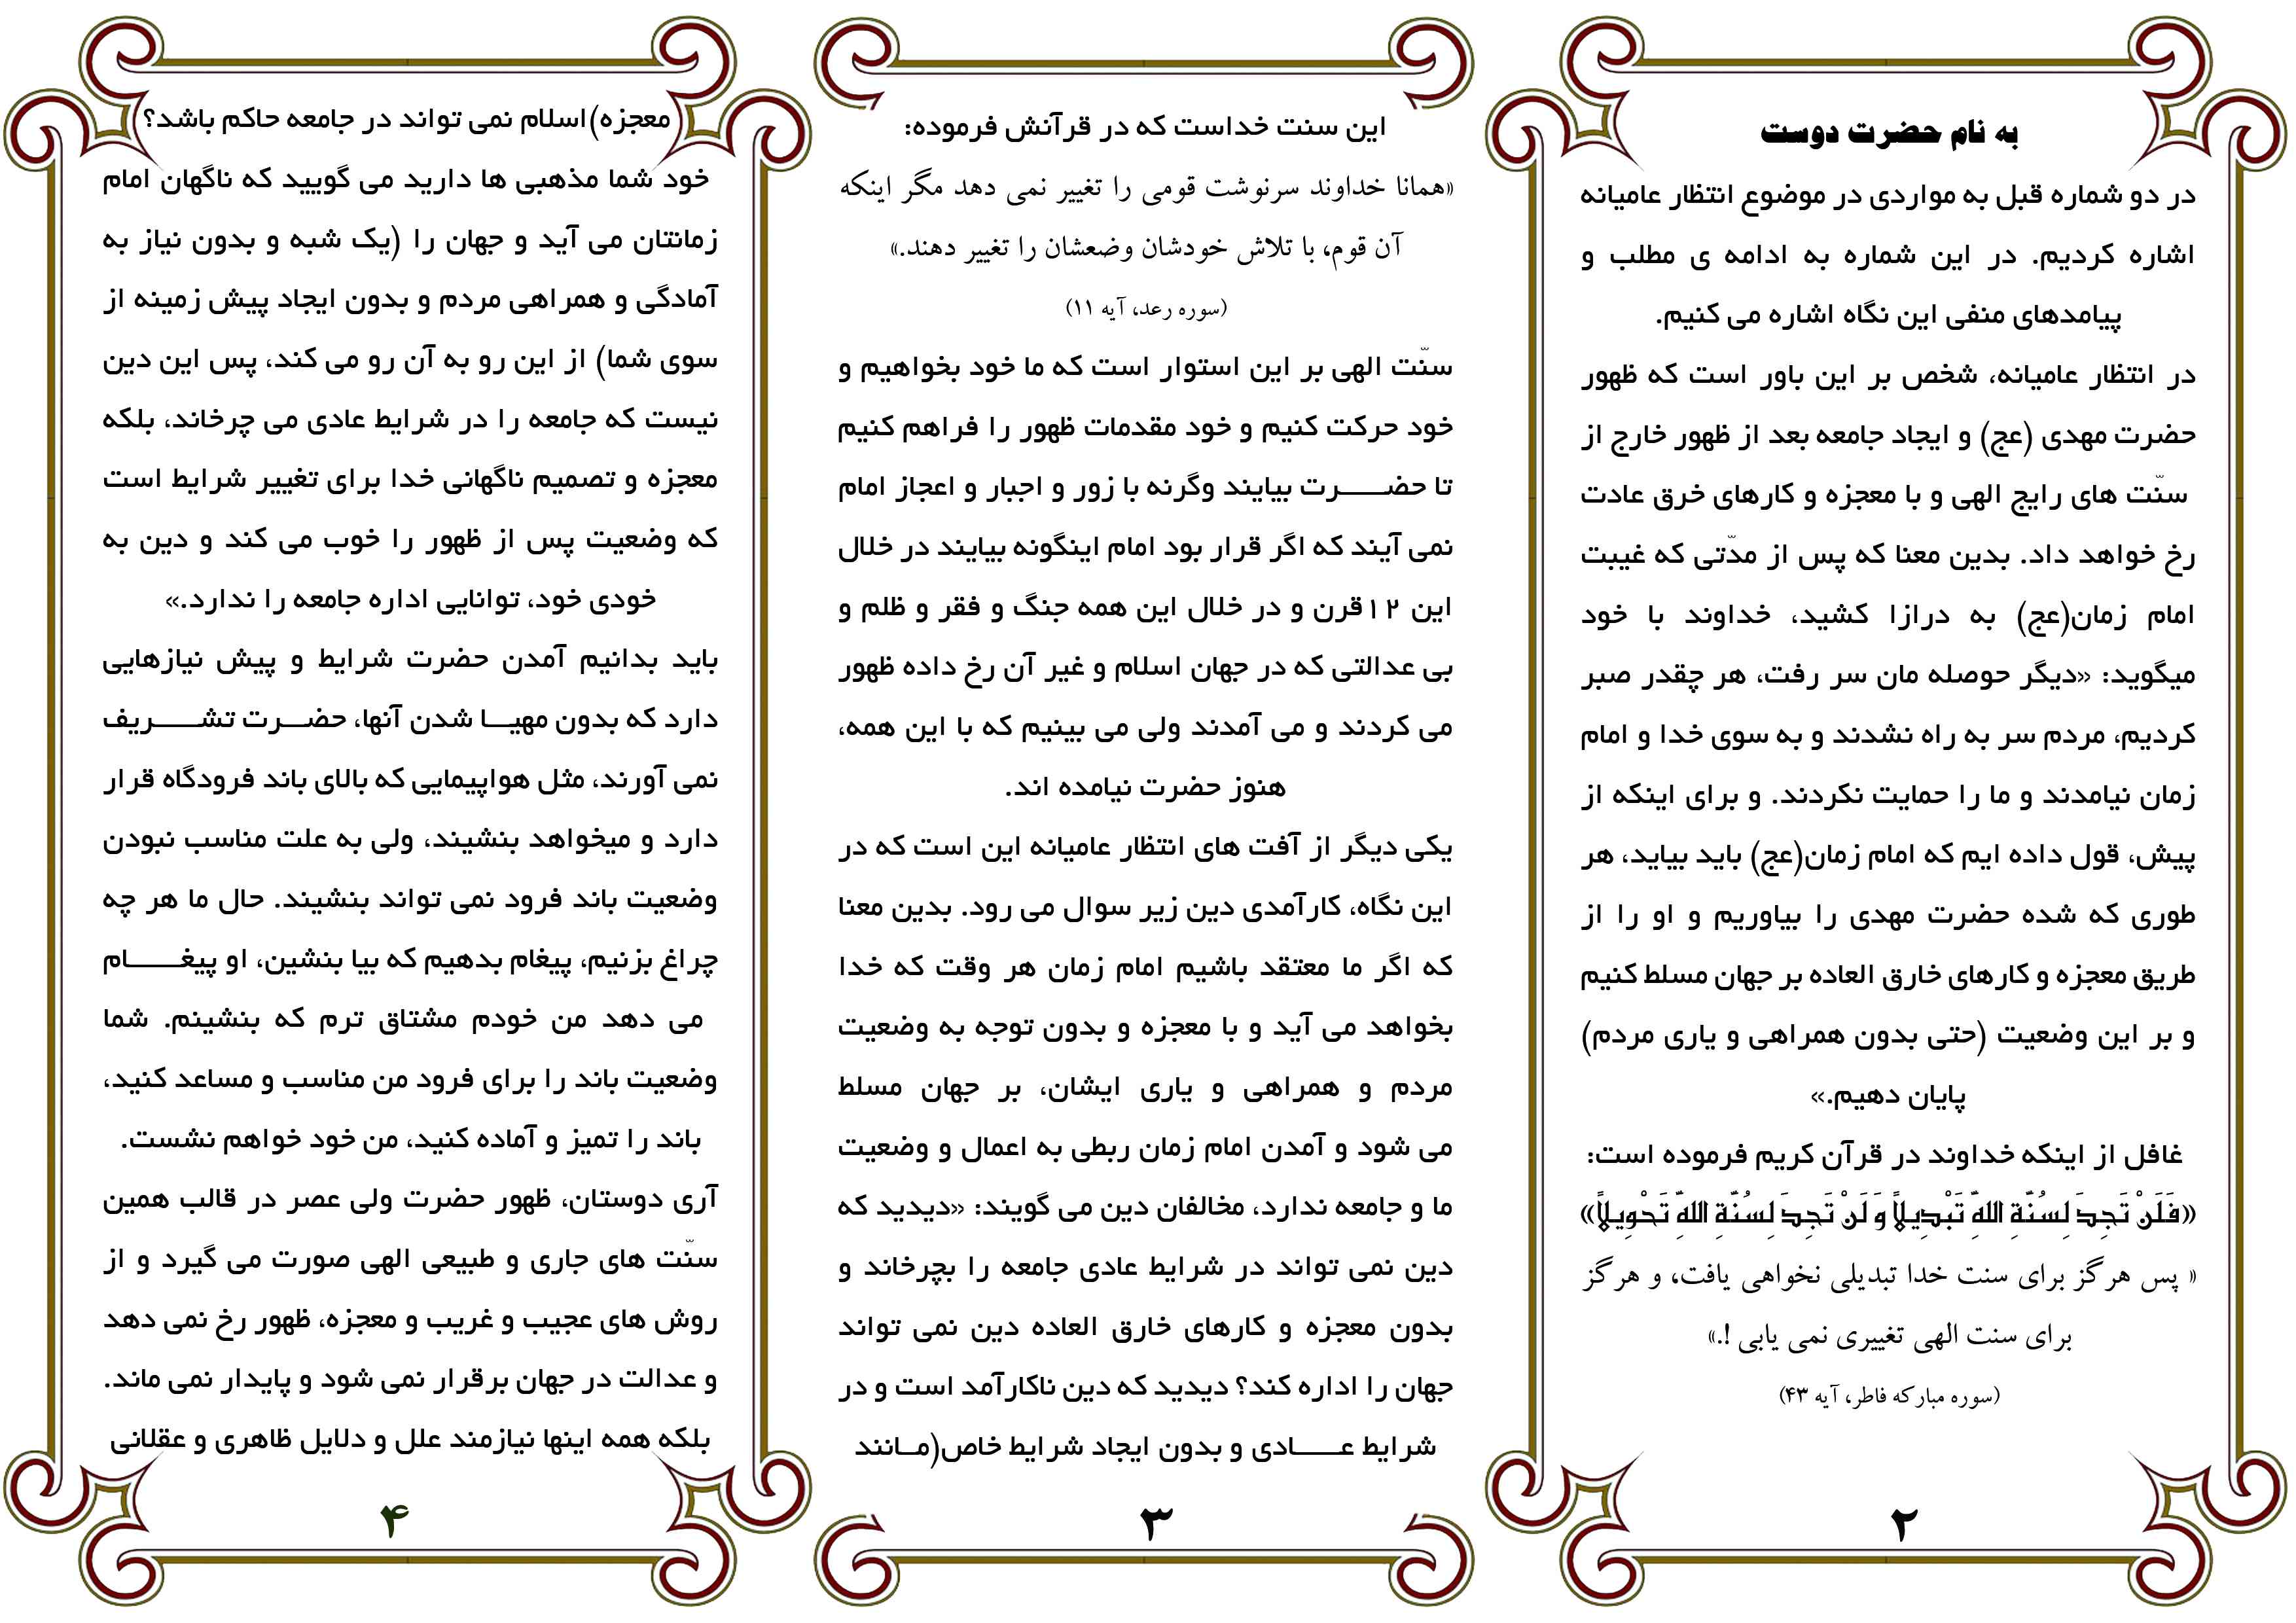 به نام حضرت دوست
در دو شماره قبل به مواردی در موضوع انتظار عامیانه
اشاره کردیم. در این شماره به ادامه ی مطلب و
پیامدهای منفی این نگاه اشاره می کنیم.
در انتظار عامیانه، شخص بر این باور است که ظهور
حضرت مهدی (عج) و ایجاد جامعه بعد از ظهور خارج از
سنّت های رایج الهی و با معجزه و کارهای خرق عادت
رخ خواهد داد. بدین معنا که پس از مدّتی که غیبت
امام زمان(عج) به درازا کشید، خداوند با خود
میگوید: «دیگر حوصله مان سر رفت، هر چقدر صبر
کردیم، مردم سر به راه نشدند و به سوی خدا و امام
زمان نیامدند و ما را حمایت نکردند. و برای اینکه از
پیش، قول داده ایم که امام زمان(عج) باید بیاید، هر
طوری که شده حضرت مهدی را بیاوریم و او را از
طریق معجزه و کارهای خارق العاده بر جهان مسلط کنیم
و بر این وضعیت (حتی بدون همراهی و یاری مردم)
پایان دهیم.»
غافل از اینکه خداوند در قرآن کریم فرموده است:
«فَلَنْ تَجِدَ لِسُنَّةِ اللَّهِ تَبْدِيلاً وَ لَنْ تَجِدَ لِسُنَّةِ اللَّهِ تَحْوِيلاً»
« پس هرگز برای سنت خدا تبدیلی نخواهی یافت، و هرگز
برای سنت الهی تغییری نمی یابی !.»
(سوره مبارکه فاطر، آیه ۴۳)
۲
این سنت خداست که در قرآنش فرموده:
«همانا خداوند سرنوشت قومی را تغییر نمی دهد مگر اینکه
آن قوم، با تلاش خودشان وضعشان را تغییر دهند.»
(سوره رعد، آیه ۱۱)
سنّت الهی بر این استوار است که ما خود بخواهیم و
خود حرکت کنیم و خود مقدمات ظهور را فراهم کنیم
تا حضـــــرت بیایند وگرنه با زور و اجبار و اعجاز امام
نمی آیند که اگر قرار بود امام اینگونه بیایند در خلال
این ۱۲قرن و در خلال این همه جنگ و فقر و ظلم و
بی عدالتی که در جهان اسلام و غیر آن رخ داده ظهور
می کردند و می آمدند ولی می بینیم که با این همه،
هنوز حضرت نیامده اند.
یکی دیگر از آفت های انتظار عامیانه این است که در
این نگاه، کارآمدی دین زیر سوال می رود. بدین معنا
که اگر ما معتقد باشیم امام زمان هر وقت که خدا
بخواهد می آید و با معجزه و بدون توجه به وضعیت
مردم و همراهی و یاری ایشان، بر جهان مسلط
می شود و آمدن امام زمان ربطی به اعمال و وضعیت
ما و جامعه ندارد، مخالفان دین می گویند: «دیدید که
دین نمی تواند در شرایط عادی جامعه را بچرخاند و
بدون معجزه و کارهای خارق العاده دین نمی تواند
جهان را اداره کند؟ دیدید که دین ناکارآمد است و در
شرایط عـــــادی و بدون ایجاد شرایط خاص(مــانند
۳
معجزه)اسلام نمی تواند در جامعه حاکم باشد؟
خود شما مذهبی ها دارید می گویید که ناگهان امام
زمانتان می آید و جهان را (یک شبه و بدون نیاز به
آمادگی و همراهی مردم و بدون ایجاد پیش زمینه از
سوی شما) از این رو به آن رو می کند، پس این دین
نیست که جامعه را در شرایط عادی می چرخاند، بلکه
معجزه و تصمیم ناگهانی خدا برای تغییر شرایط است
که وضعیت پس از ظهور را خوب می کند و دین به
خودی خود، توانایی اداره جامعه را ندارد.»
باید بدانیم آمدن حضرت شرایط و پیش نیازهایی
دارد که بدون مهیــا شدن آنها، حضــرت تشـــــریف
نمی آورند، مثل هواپیمایی که بالای باند فرودگاه قرار
دارد و میخواهد بنشیند، ولی به علت مناسب نبودن
وضعیت باند فرود نمی تواند بنشیند. حال ما هر چه
چراغ بزنیم، پیغام بدهیم که بیا بنشین، او پیغـــــام
می دهد من خودم مشتاق ترم که بنشینم. شما
وضعیت باند را برای فرود من مناسب و مساعد کنید،
باند را تمیز و آماده کنید، من خود خواهم نشست.
آری دوستان، ظهور حضرت ولی عصر در قالب همین
سنّت های جاری و طبیعی الهی صورت می گیرد و از
روش های عجیب و غریب و معجزه، ظهور رخ نمی دهد
و عدالت در جهان برقرار نمی شود و پایدار نمی ماند.
بلکه همه اینها نیازمند علل و دلایل ظاهری و عقلانی
۴